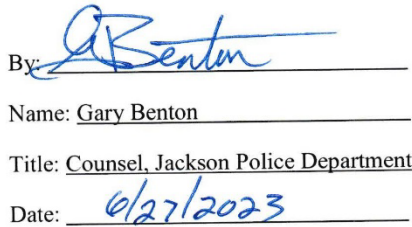 By: GBenton
Name: Gary Benton
Title: Counsel, Jackson Police Department
Date: 6/27/2023